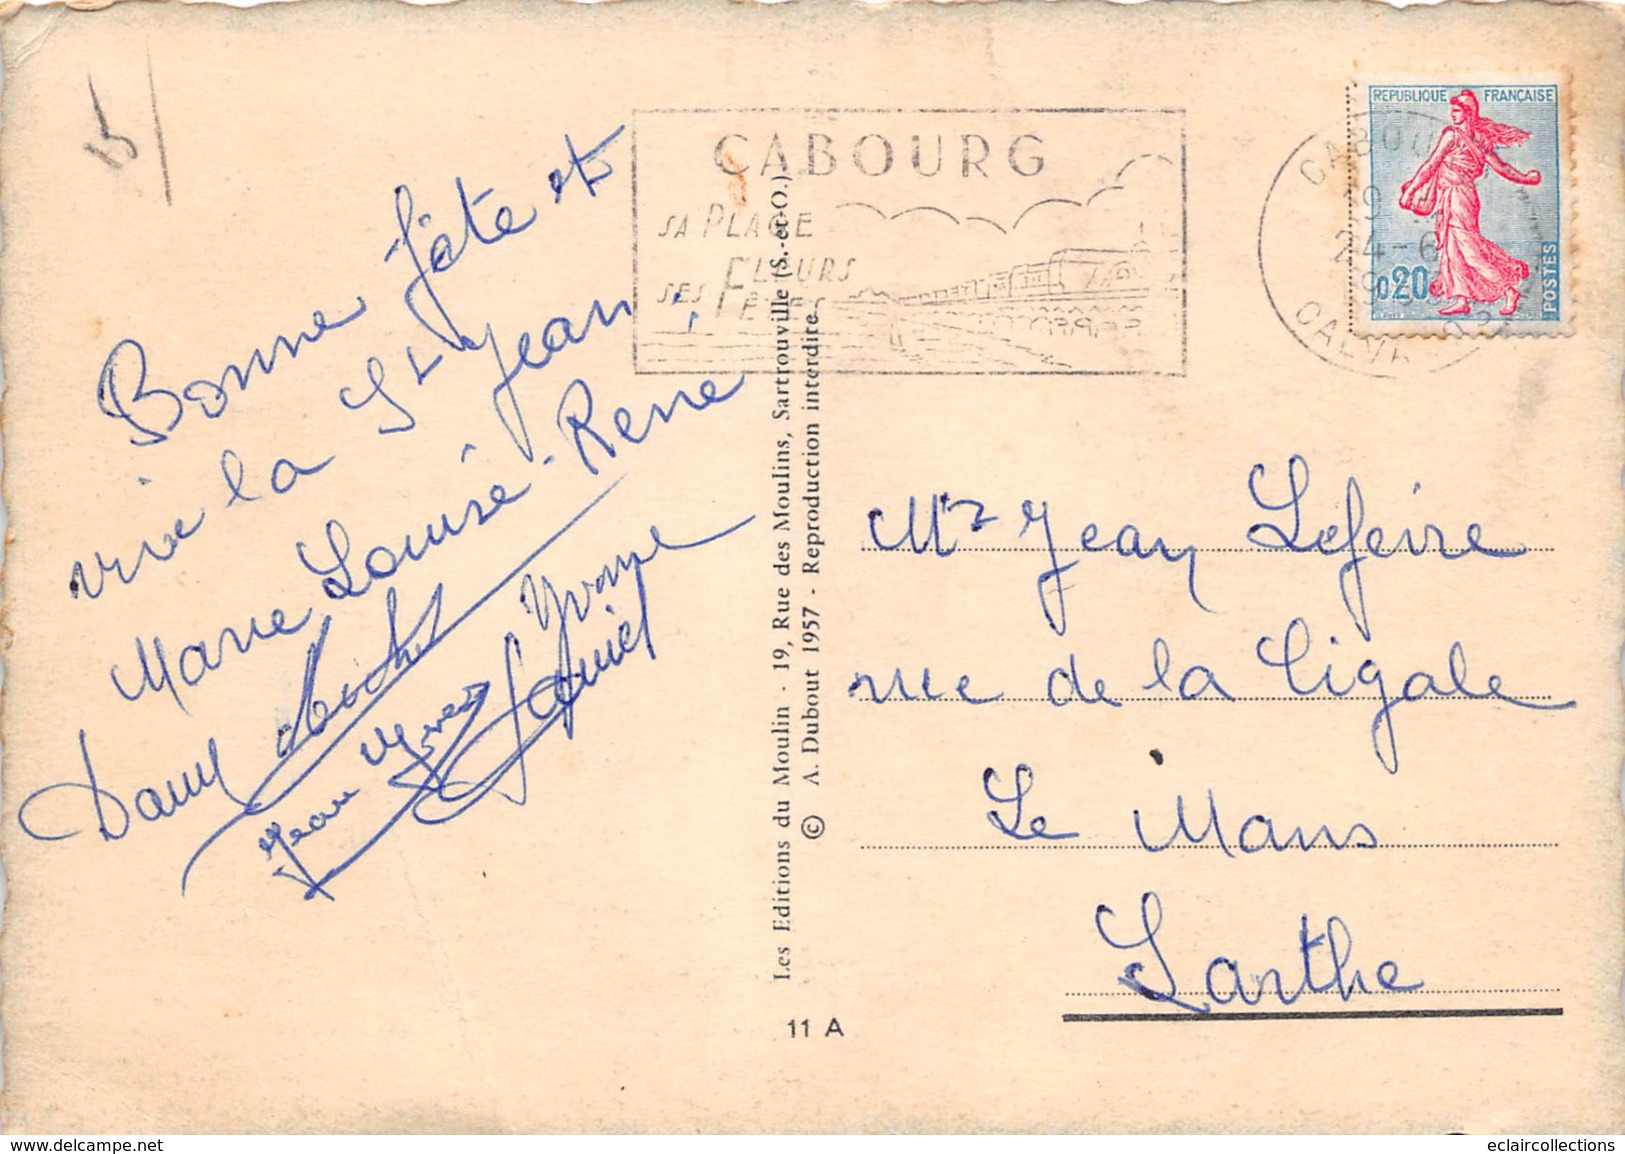 15
Bonne fête et
vive la St Jean
Marie Louise - René
Yvonne
Dany Michel
Daniel
Jean Yves
CABOURG
SA PLAGE
SES FLEURS
SES FÊTES
REPUBLIQUE FRANÇAISE
0,20
POSTES
CABOU
19
24-6
CALV
Les Editions du Moulin - 19, Rue des Moulins, Sartrouville (S.-et-O.)
© A. Dubout 1957 - Reproduction interdite
11 A
Mr Jean Lefeivre
rue de la Cigale
Le Mans
Sarthe
www.delcampe.net
eclaircollections